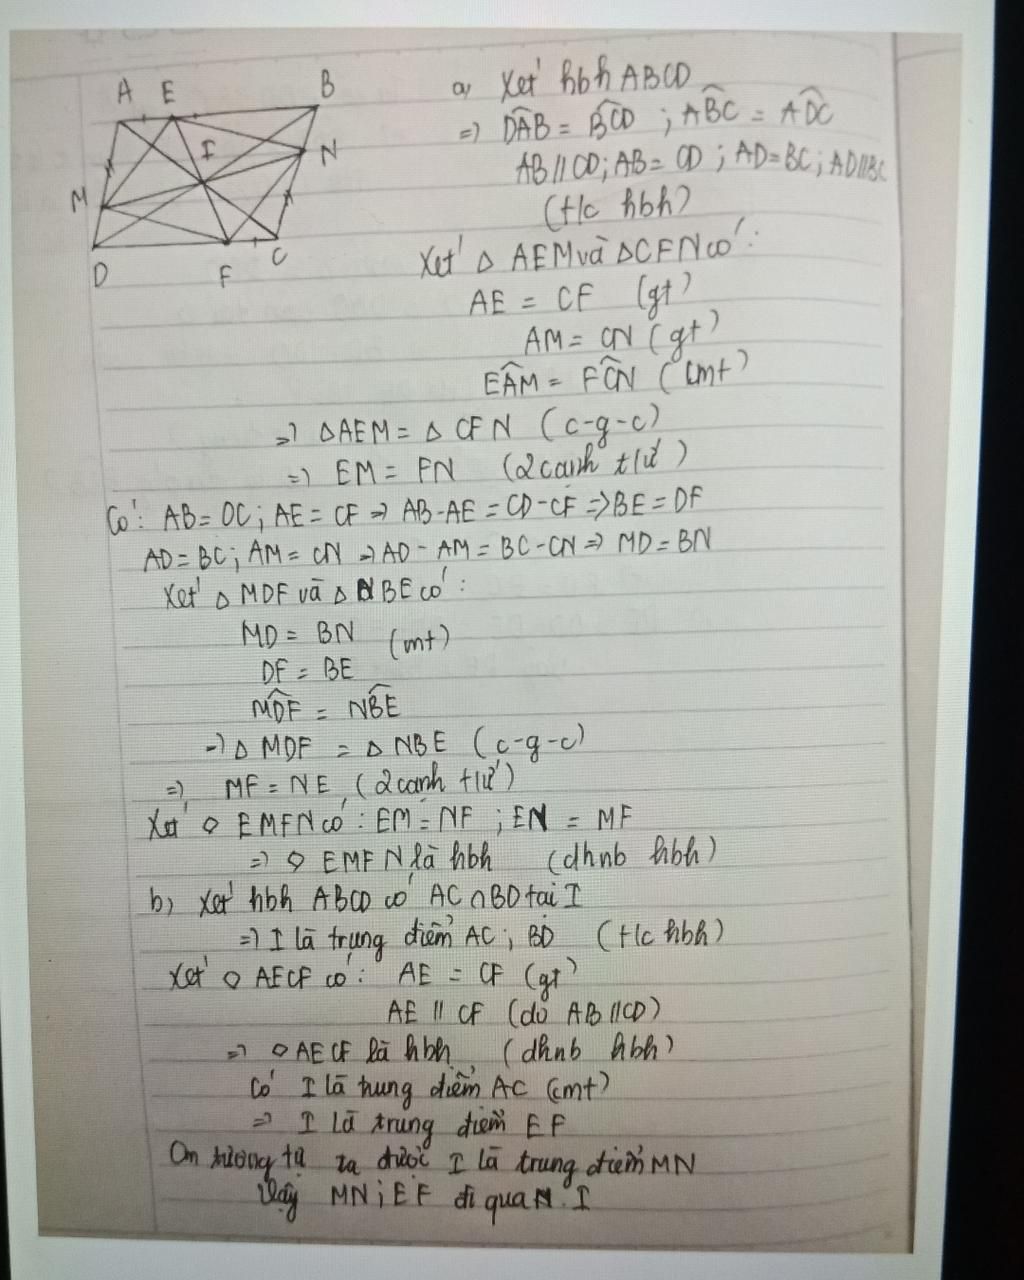 A E B
I
N
M
D F C
a, Xét hbh ABCD
=) DAB = BCD ; ABC = ADC
AB // CD; AB = CD ; AD = BC; AD // BC
(t/c hbh)
Xét △ AEM và △CFN có:
AE = CF (gt)
AM = CN (gt)
EAM = FCN (cmt)
=) △AEM = △ CFN (c-g-c)
=) EM = FN (2 cạnh t/ứ)
Có: AB = DC; AE = CF => AB-AE = CD-CF => BE = DF
AD = BC; AM = CN => AD - AM = BC-CN => MD = BN
Xét △ MDF và △ NBE có:
MD = BN (cmt)
DF = BE
MDF = NBE
=) △ MDF = △ NBE (c-g-c)
=) MF = NE (2 cạnh t/ứ)
Xét ◇ EMFN có: EM = NF ; EN = MF
=) ◇ EMFN là hbh (dhnb hbh)
b, Xét hbh ABCD có AC ∩ BD tại I
=) I là trung điểm AC; BD (t/c hbh)
Xét ◇ AECF có: AE = CF (gt)
AE // CF (do AB //CD)
=) ◇ AECF là hbh (dhnb hbh)
Có I là trung điểm AC (cmt)
=) I là trung điểm EF
tương tự ta được I là trung điểm MN
Vậy MN; EF đi qua I